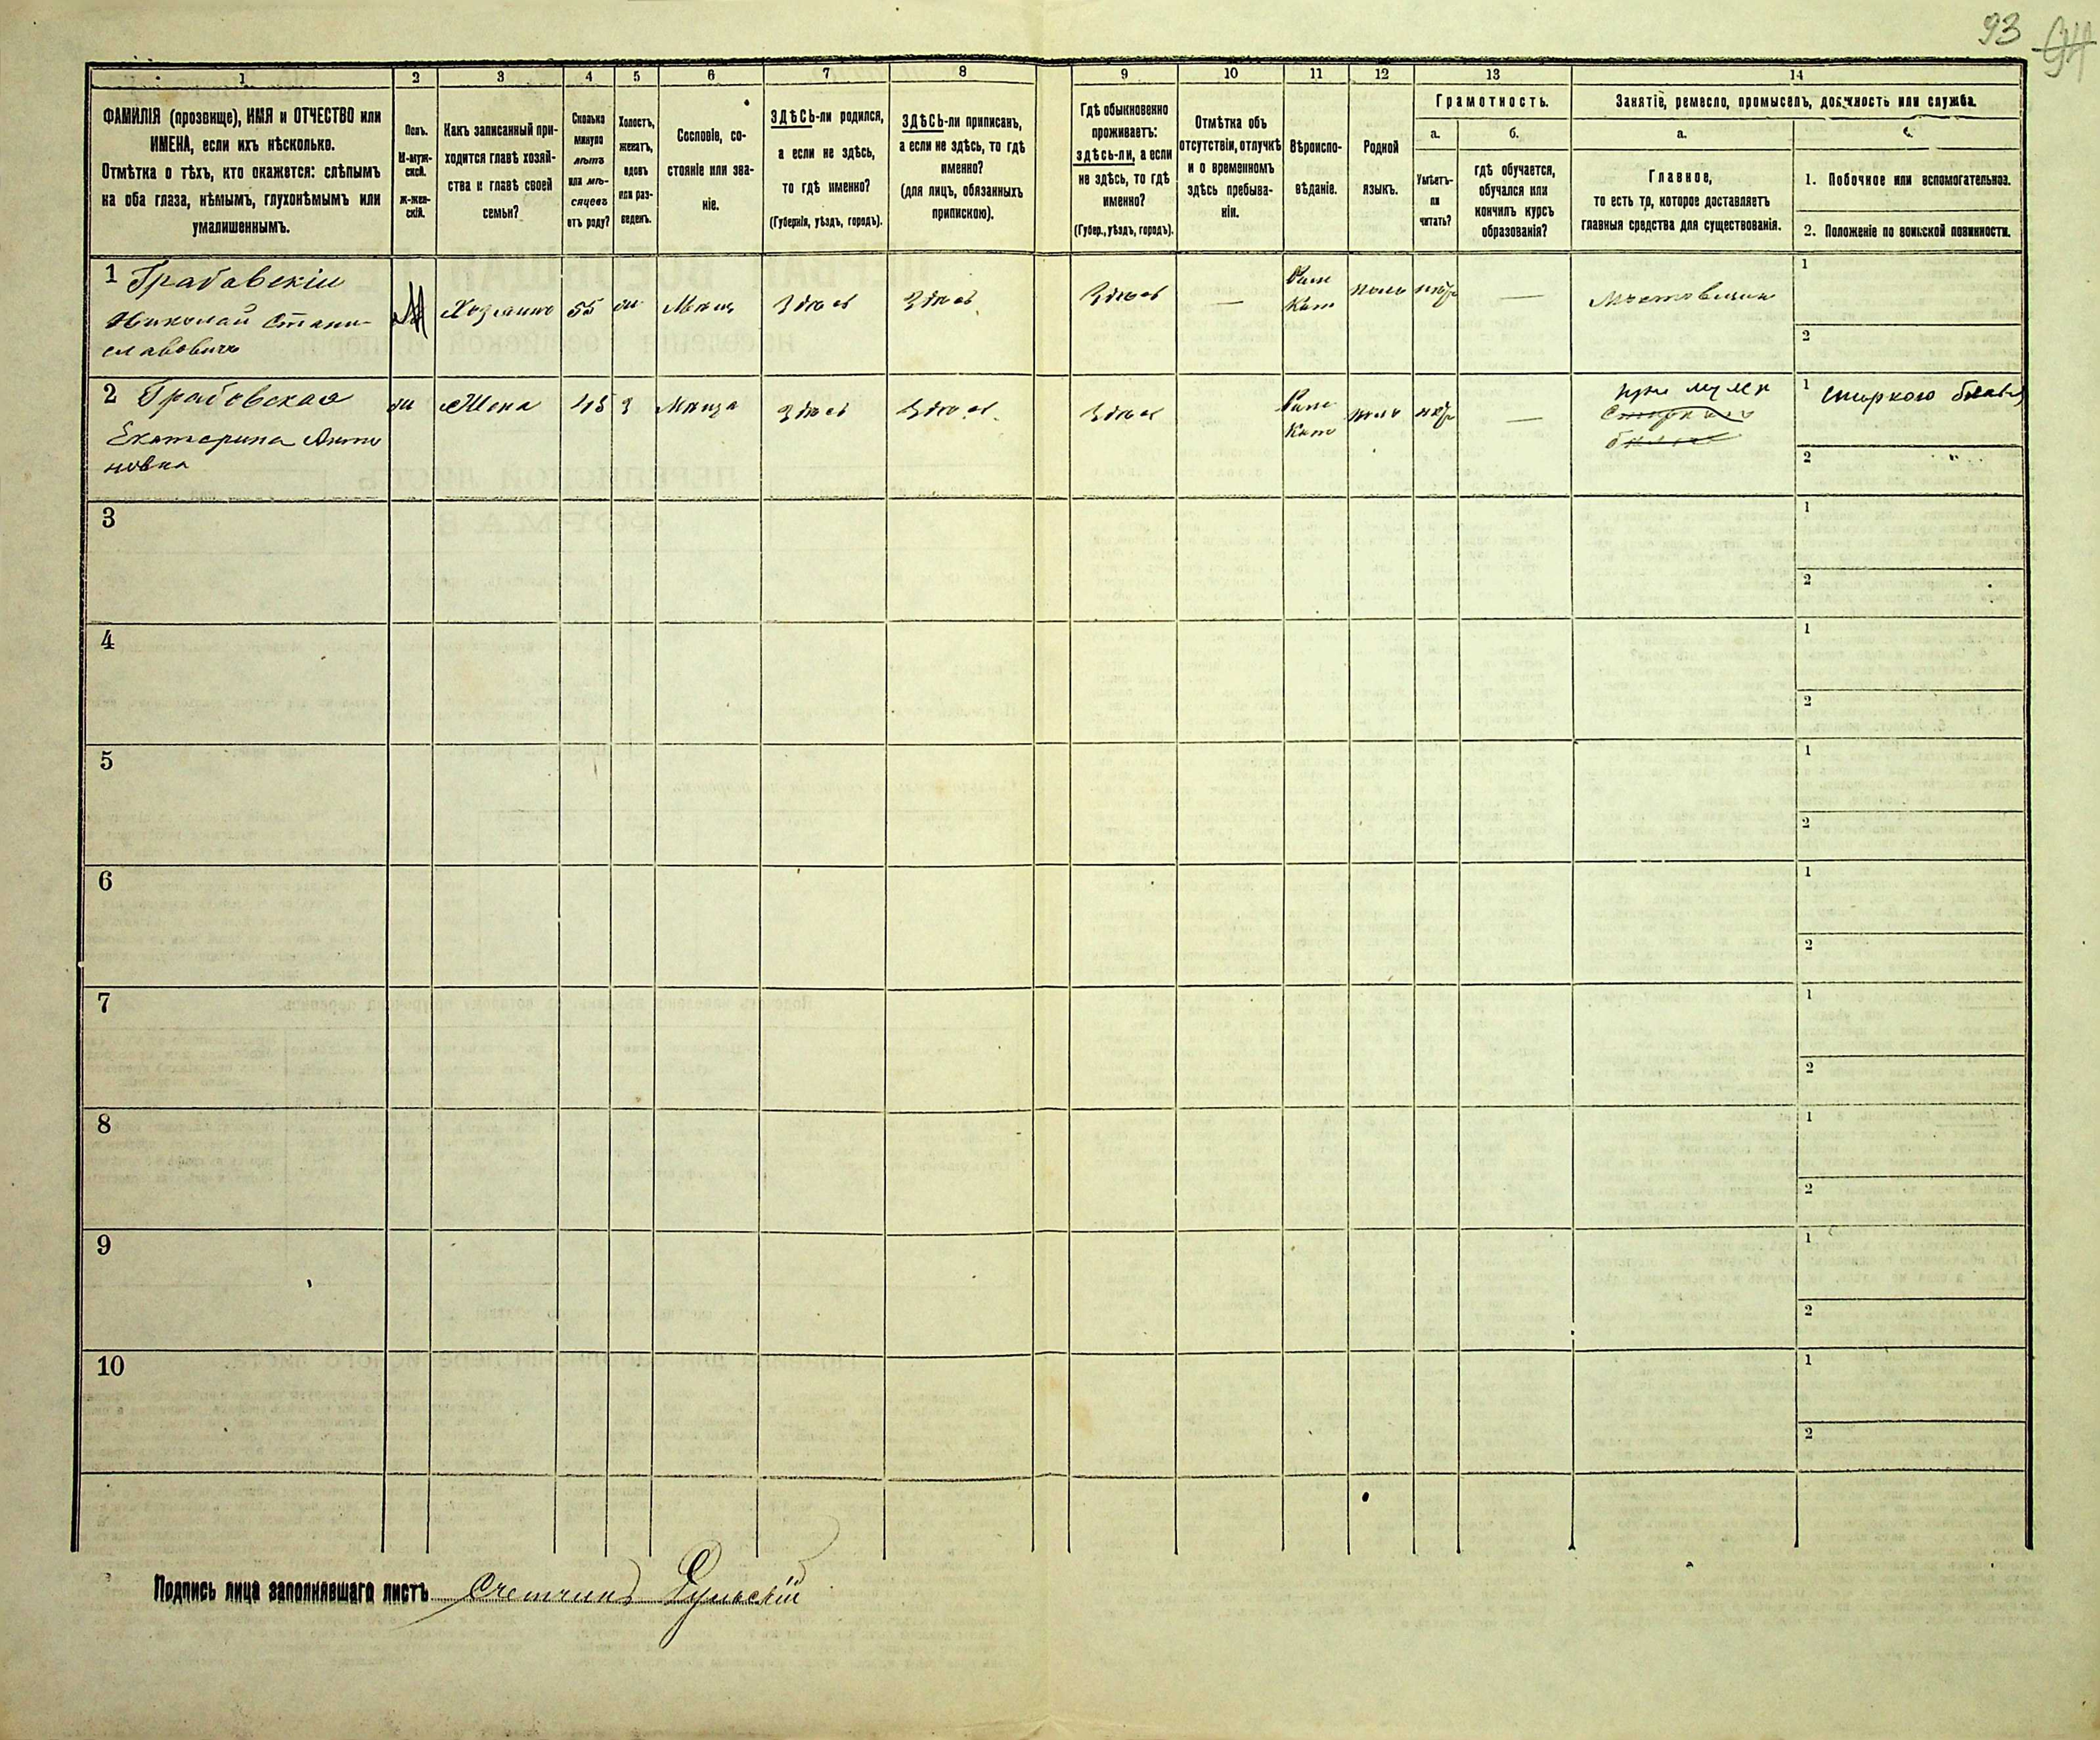 93 94
1 2 3 4 5 6 7 8 9 10 11 12 13 14
ФАМИЛІЯ (прозвище), ИМЯ и ОТЧЕСТВО или
ИМЕНА, если ихъ нѣсколько.
Отмѣтка о тѣхъ, кто окажется: слѣпымъ
на оба глаза, нѣмымъ, глухонѣмымъ или
умалишеннымъ.
Полъ.
М-муж-
ской.
Ж-жен-
скій.
Какъ записанный при-
ходится главѣ хозяй-
ства и главѣ своей
семьи?
Сколько
минуло
лѣтъ
или мѣ-
сяцевъ
отъ роду?
Холостъ,
женатъ,
вдовъ
или раз-
веденъ.
Сословіе, со-
стояніе или зва-
ніе.
ЗДѢСЬ-ли родился,
а если не здѣсь,
то гдѣ именно?
(Губернія, уѣздъ, городъ).
ЗДѢСЬ-ли приписанъ,
а если не здѣсь, то гдѣ
именно?
(для лицъ, обязанныхъ
припискою).
Гдѣ обыкновенно
проживаетъ:
здѣсь-ли, а если
не здѣсь, то гдѣ
именно?
(Губер., уѣздъ, городъ).
Отмѣтка объ
отсутствіи, отлучкѣ
и о временномъ
здѣсь пребыва-
ніи.
Вѣроиспо-
вѣданіе.
Родной
языкъ.
Грамотность.
а.
Умѣетъ-
ли
читать?
б.
гдѣ обучается,
обучался или
кончилъ курсъ
образованія?
Занятіе, ремесло, промыселъ, должность или служба.
а.
Главное,
то есть то, которое доставляетъ
главныя средства для существованія.
1. Побочное или вспомогательное.
2. Положеніе по воинской повинности.
1 Грабавскій
Николай Стани-
славовичъ
М Хозяинъ 55 ж Мѣщ Здѣсь Здѣсь Здѣсь —
Рим
Кат
поль —
1
2
2 Грабовская
Екатерина Анто
новна
ж Жена 45 З Мѣща Здѣсь Здѣсь Здѣсь
Рим
Кат
поль —
при мужѣ
Стирка
бѣлья
1 стиркою бѣлья
2 "
3
1
2
4
1
2
5
1
2
6
1
2
7
1
2
8
1
2
9
1
2
10
1
2
Подпись лица заполнявшаго листъ Счетчикъ